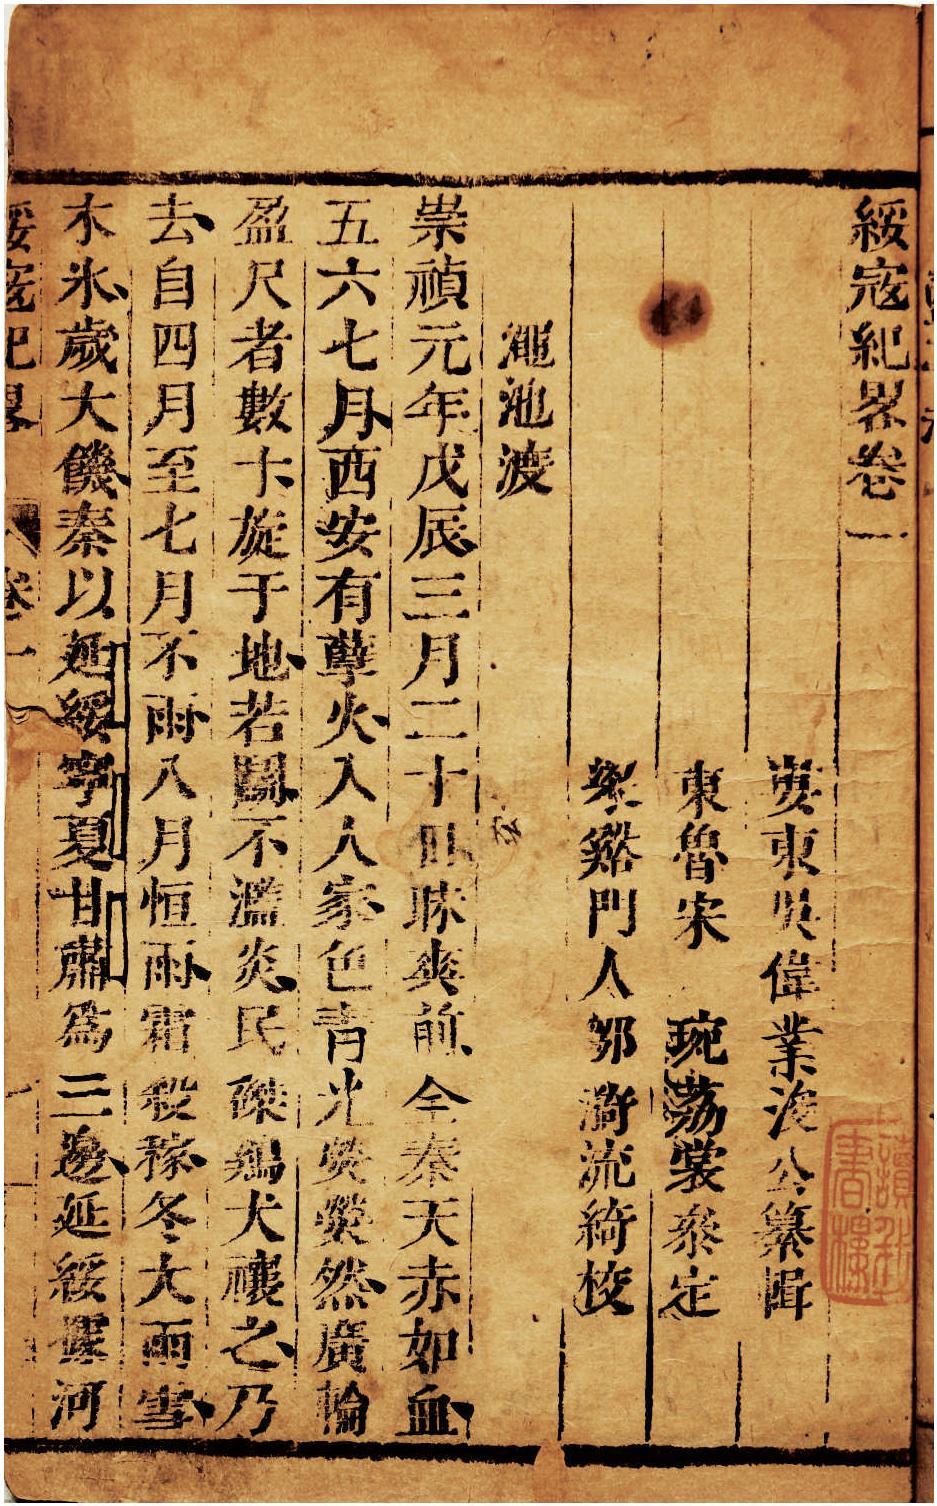 綏寇紀畧卷一
婁東吳偉業浚公纂輯
東魯宋 琬荔裳叅定
梁谿門人鄒漪流綺校
澠池渡
崇禎元年戊辰三月二十日昧爽前全秦天赤如血
五六七月西安有孽火入人家色青光熒熒然廣輪
盈尺者數十旋于地若鬭不濫炎民磔鷄犬禳之乃
去自四月至七月不雨八月恒雨霜殺稼冬大雨雪
木氷歲大饑秦以延綏寧夏甘肅爲三邊延綏據河
綏寇紀畧 卷一 一